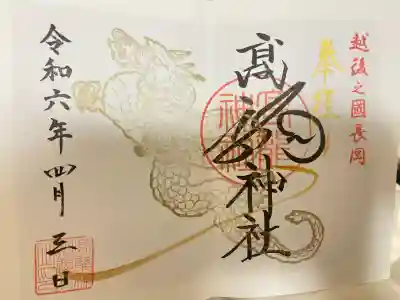 越後之國長岡
奉拝
高龍神社
令和六年四月三日